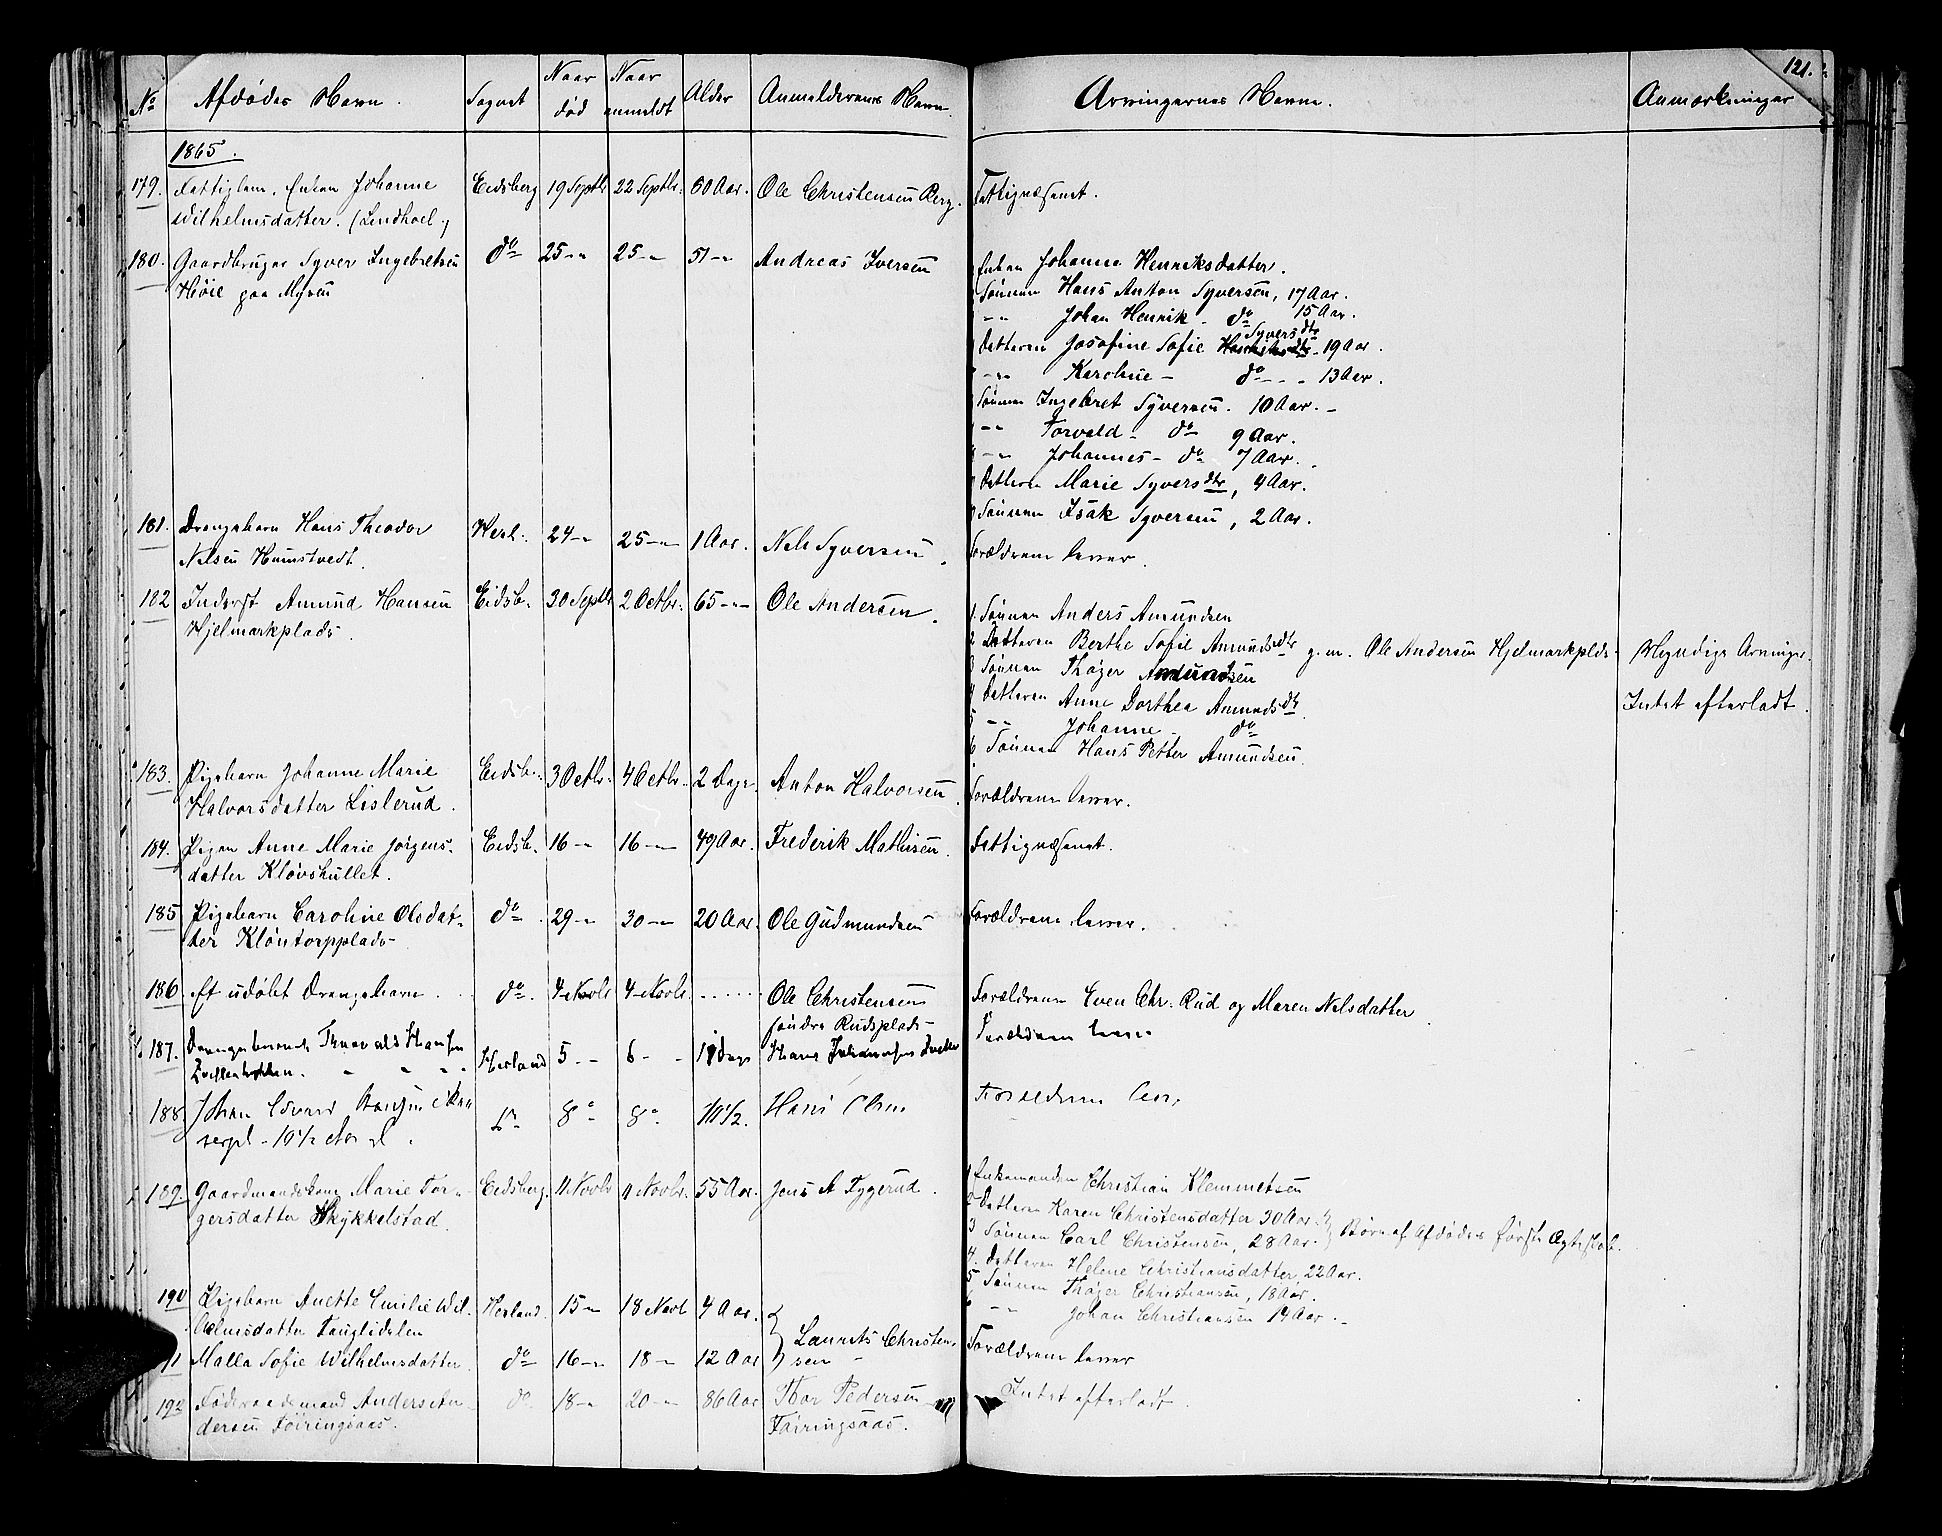 121.
No Afdødes Navn. Sognet Naar død Naar anmeldt Alder Anmelderens Navn. Arvingernes Navne. Anmærkninger
1865.
179. Fattiglem. Enken Johanne Eidsberg 19 Septbr 22 Septbr. 60 Aar. Ole Christensen Berg. Fattigvæsenet.
Wilhelmsdatter. (Lindhoel)
180. Gaardbruger Syver Ingebretsen do 25 -"- 25 -"- 51 -"- Andreas Iversen Enken Johanne Henriksdatter.
Høie paa Mysen
Sønnen Hans Anton Syversen, 17 Aar.
-"- Johan Henrik - do 15 Aar.
Syversdtr
Datteren Josefine Sofie Henriksdtr - 19 Aar.
-"- Karoline - do - - - 13 Aar.
Sønnen Ingebret Syversen. 10 Aar. -
-"- Torvald - do 9 Aar.
-"- Johannes - do 7 Aar.
Datteren Marie Syversdtr, 4 Aar.
Sønnen Isak Syversen, 2 Aar.
181. Drengebarn Hans Theodor Herl. 24 -"- 25 -"- 1 Aar. Nels Syversen. Forældrene lever.
Nelsen Humstvedt.
182 Inderst Amund Hansen Eidsb. 30 Septbr 2 Octbr. 65 -"- Ole Andersen.
Hjelmarkplads.
1. Sønnen Anders Amundsen
2 Datteren Berthe Sofie Amundsdtr g. m. Ole Andersen Hjelmarkplds - Myndige Arvinger.
3 Sønnen Thøger Amundsen
Intet efterladt.
4 Datteren Anne Dorthea Amundsdtr.
5 -"- Johanne - do
6 Sønnen Hans Petter Amundsen.
183. Pigebarn Johanne Marie Eidsb. 3 Octbr. 4 Octbr. 2 Dage. Anton Halvorsen. Forældrene lever.
Halvorsdatter Lislerud.
184. Pigen Anne Marie Jørgens- Eidsb. 16 -"- 16 -"- 49 Aar. Frederik Mathisen. Fattigvæsenet.
datter Kløvshullet.
185 Pigebarn Caroline Olsdat- do. 29 -"- 30 -"- 20 Aar. Ole Gudmundsen Forældrene lever.
ter Kløntorpplads -
186 Et udøbt Drengebarn. do. 4 Novbr 4 Novbr. ..... Ole Christensen Forældrene Even Chr. Rud og Maren Nelsdatter.
søndre Rudsplads -
187. Drengebarnet Thorvald Hansen Herland 5 -"- 6 -"- Dage Hans Johannesen Forældrene lever
188 Johan Edvard Hansen do 8 - 8 - 10 1/2. Hans Olsen Forældrene lev.
serpl - 10 1/2 Aar
189. Gaardmandskone Marie Tor- Eidsberg. 11 Novbr 11 Novbr. 55 Aar. Jens A Tygerud.
gersdatter Skykkelstad.
1 Enkemanden Christian Klemmetsen
2 Datteren Karen Christensdatter 30 Aar. } Børn af Afdødes første Ægteskab.
3 Sønnen Carl Christensen, 28 Aar.
4. Datteren Helene Christiansdatter, 22 Aar.
5 Sønnen Thøger Christiansen, 18 Aar.
-"- Johan Christiansen 14 Aar. -
190 Pigebarn Anette Emilie Wil- Herland. 15 -"- 18 Novbr 4 Aar. } Laurits Christen- Forældrene lever
helmsdatter Fuugledalen sen -
Malla Sofie Wilhelmsdatter do 16 -"- 18 -"- 12 Aar
192 Føderaadsmand Anders An- do 18 -"- 20 -"- 86 Aar Thor Pedersen Intet efterladt.
dersen Føiringsaas. Føiringsaas.